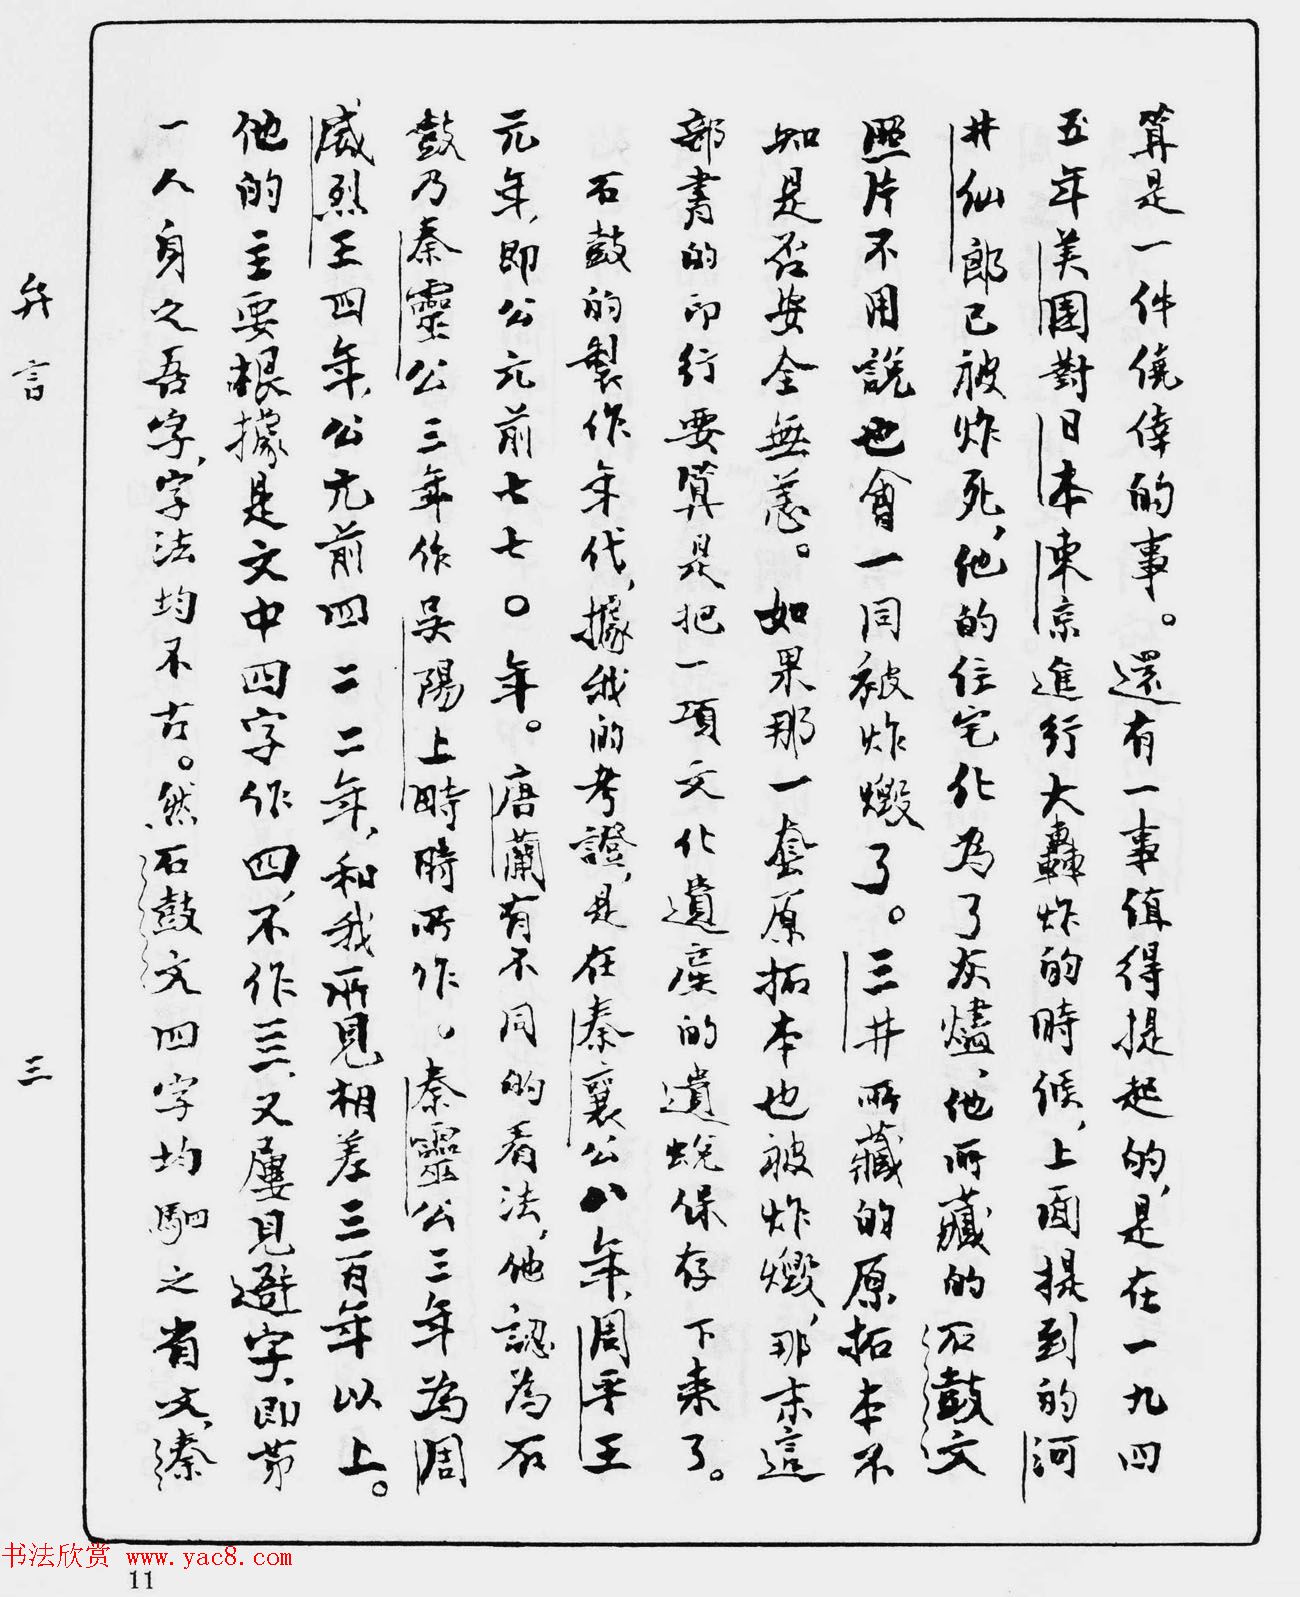 算是一件僥倖的事。還有一事值得提起的,是在一九四
五年美國對日本東京進行大轟炸的時候,上面提到的河
井仙郎已被炸死,他的住宅化為了灰燼,他所藏的石鼓文
照片不用說也會一同被炸燬了。三井所藏的原拓本不
知是否安全無恙。如果那一套原拓本也被炸燬,那末這
部書的印行要算是把一項文化遺產的遺蛻保存下來了。
石鼓的製作年代,據我的考證,是在秦襄公八年,周平王
元年,即公元前七七〇年。唐蘭有不同的看法,他認為石
鼓乃秦靈公三年作吳陽上畤時所作。秦靈公三年為周
威烈王四年,公元前四二二年,和我所見相差三百年以上。
他的主要根據是文中四字作四,不作亖,又屢見避字,即第
一人身之吾字,字法均不古。然石鼓文四字均駟之省文,秦
弁言
三
书法欣赏 www.yac8.com
11